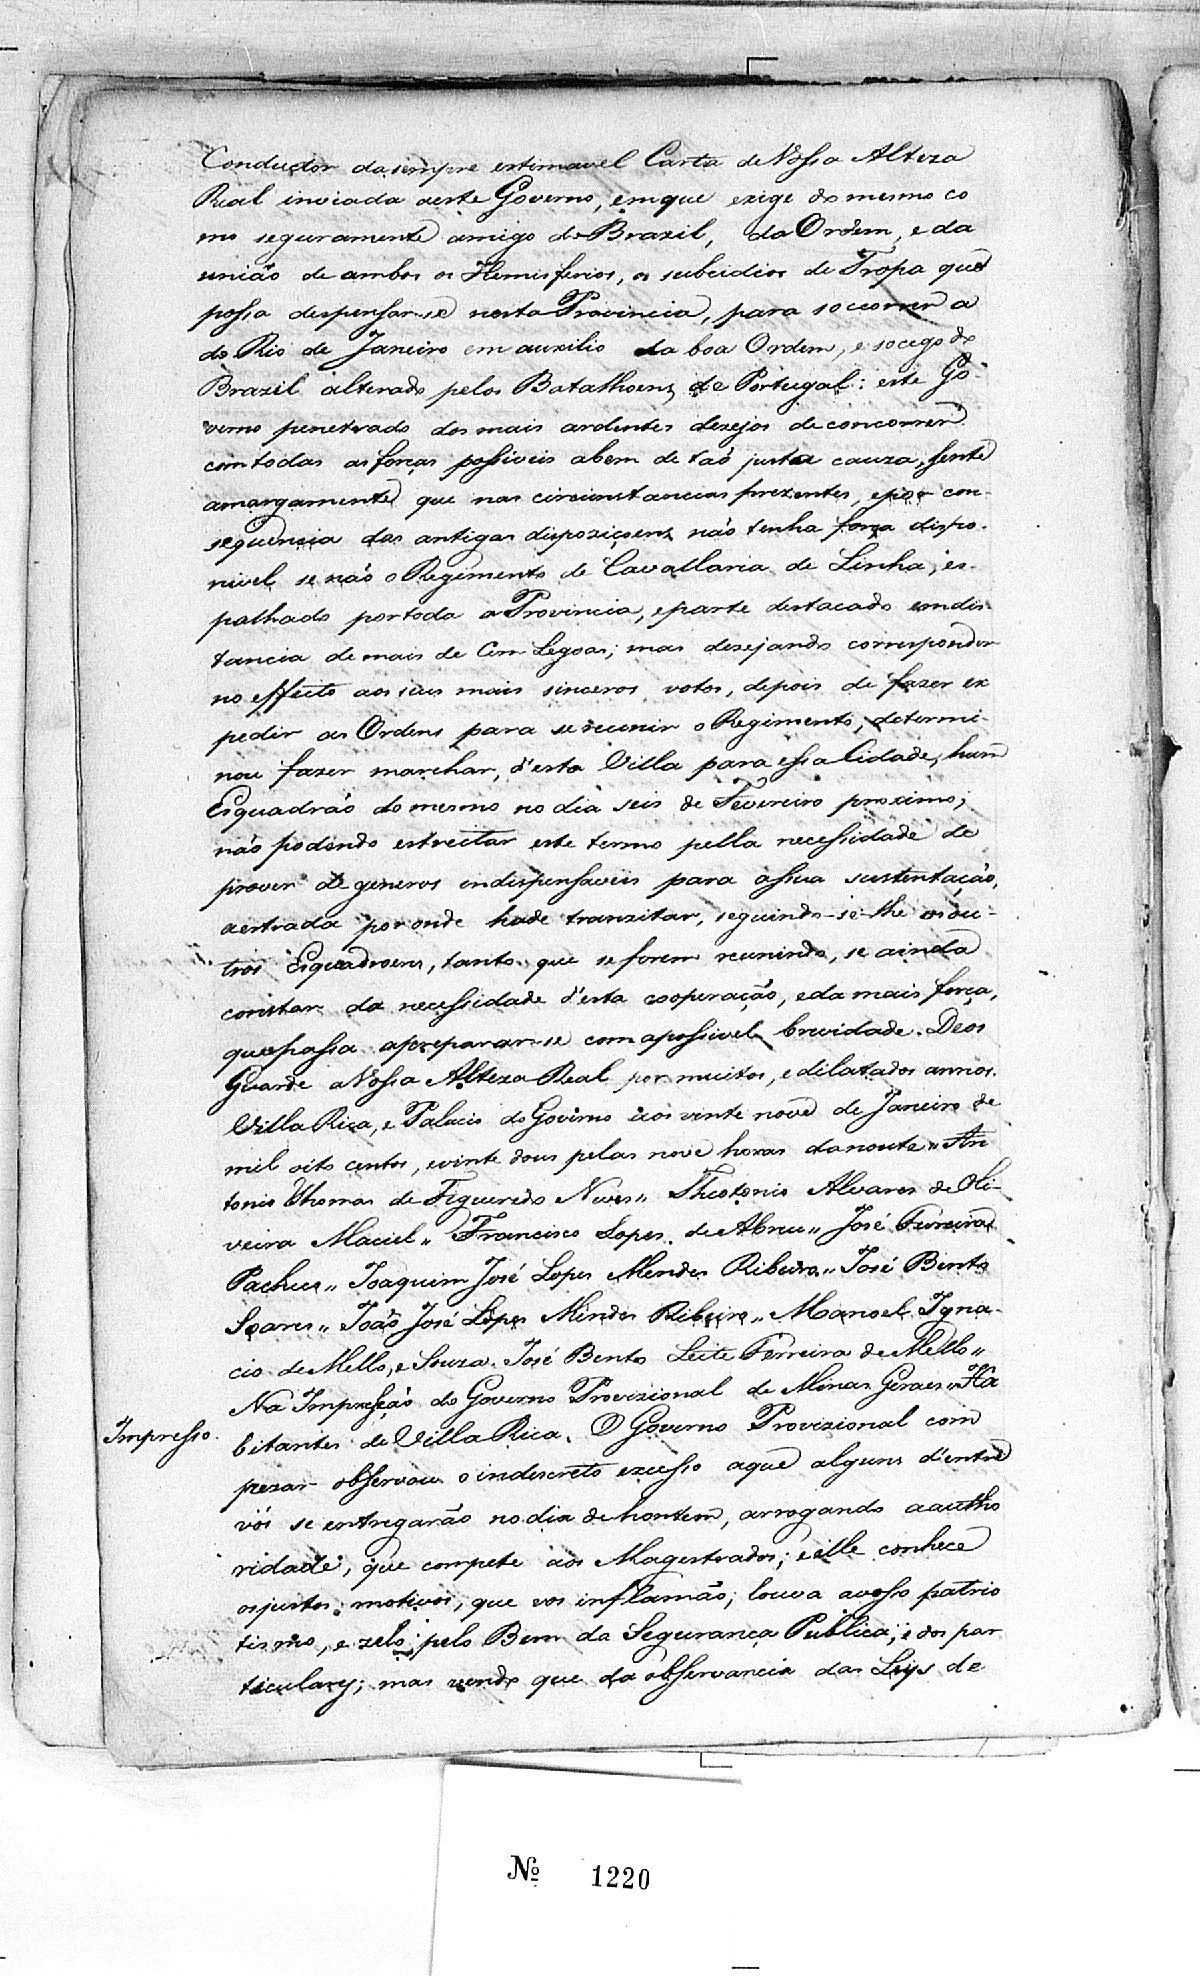 Conductor da sempre estimavel Carta de Vossa Alteza
Real inviada aeste Governo, emque exige do mesmo co
mo seguramente amigo do Brazil, da Ordem, e da
união de ambos os Hemisferios, os subcidios de Tropa que
possa despensar-se nesta Provincia, para soccorrer a
do Rio de Janeiro em auxilio da boa Ordem, e socego do
Brazil alterado pelos Batalhoens de Portugal: este Go
verno penetrado dos mais ardentes dezejos de concorrer
com todas as forças possiveis abem de taõ justa cauza, sente
amargamente que nas circunstancias prezentes, epor con-
sequencia das antigas dispoziçoens naõ tenha força dispo-
nivel se naõ o Regimento de Cavallaria de Linha, es-
palhado portoda a Provincia, eparte destacado emdis
tancia de mais de Cem Legoas; mas desejando corresponder
no effecto aos seus mais sinceros votos, depois de fazer ex
pedir as Ordens para sereunir o Regimento, determi-
nou fazer marchar, d'esta Villa para essa Cidade, hum
Esquadraõ do mesmo no dia seis de Fevereiro proximo;
naõ podendo estreitar este termo pella necessidade de
prover de generos endispensaveis para assua sustentação,
aestrada por onde hade tranzitar, seguindo-se-lhe os ou-
tros Esquadroens, tanto que se forem reunindo, se ainda
constar da necessidade d'esta cooperação, eda mais força,
quepossa apreparar-se comapossivel brevidade. Deos
Guarde a Vossa Alteza Real por muitos, e dilatados annos.
Villa Rica, e Palacio do Governo aos vinte nove de Janeiro de
mil oito centos, evinte dous pelas nove horas danoute „ An
tonio Thomas de Figueredo Neves „ Theotonio Alvares de Oli-
veira Maciel „ Francisco Lopes de Abreu „ José Ferreira
Pacheco „ Joaquim José Lopes Mendes Ribeiro „ José Bento
Soares „ João José Lopes Mendes Ribeiro „ Manoel Igna-
cio de Mello, e Souza. José Bento Leite Ferreira de Mello „
Na Impressaõ do Governo Provizional de Minas Geraes „ Ha
Impresso.
bitantes de Villa Rica. O Governo Provizional com
pezar observou o indescreto excesso aque alguns d'entre
vós se entregarão no dia de hontem, arrogando aautho
ridade, que compete aos Magestrados; e elle conhece
osjustos motivos, que vos inflamaõ; louva avosso patrio
tismo, e zelo pelo Bem da Segurança Publica, e dos par
ticulary; mas vendo que da observancia das Leys de
Nº 1220